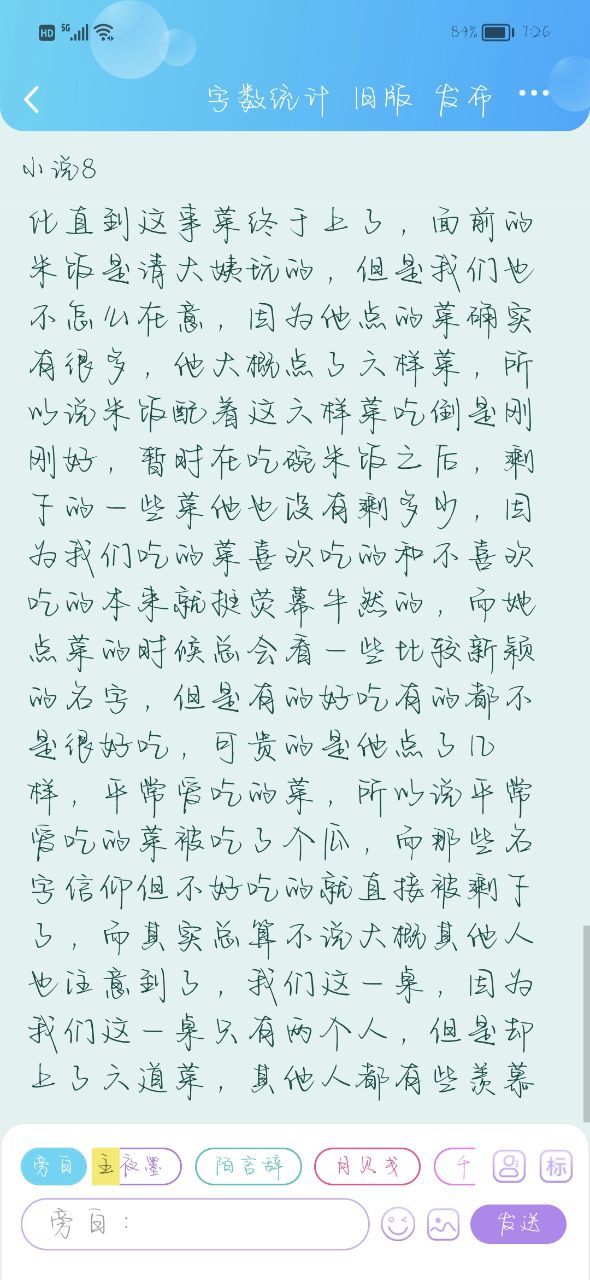 HD 5G 84% 7:26
字数统计 旧版 发布 ...
小说8
化直到这事菜终于上了，面前的
米饭是请大姨玩的，但是我们也
不怎么在意，因为他点的菜确实
有很多，他大概点了六样菜，所
以说米饭配着这六样菜吃倒是刚
刚好，暂时在吃碗米饭之后，剩
下的一些菜他也没有剩多少，因
为我们吃的菜喜欢吃的和不喜欢
吃的本来就挂荧幕牛然的，而她
点菜的时候总会看一些比较新颖
的名字，但是有的好吃有的都不
是很好吃，可贵的是他点了几
样，平常爱吃的菜，所以说平常
爱吃的菜被吃了个瓜，而那些名
字信仰但不好吃的就直接被剩下
了，而其实总算不说大概其他人
也注意到了，我们这一桌，因为
我们这一桌只有两个人，但是却
上了六道菜，其他人都有些羡慕
旁白 主 夜墨 陌言辞 月贝戋 千 标
旁白： 发送